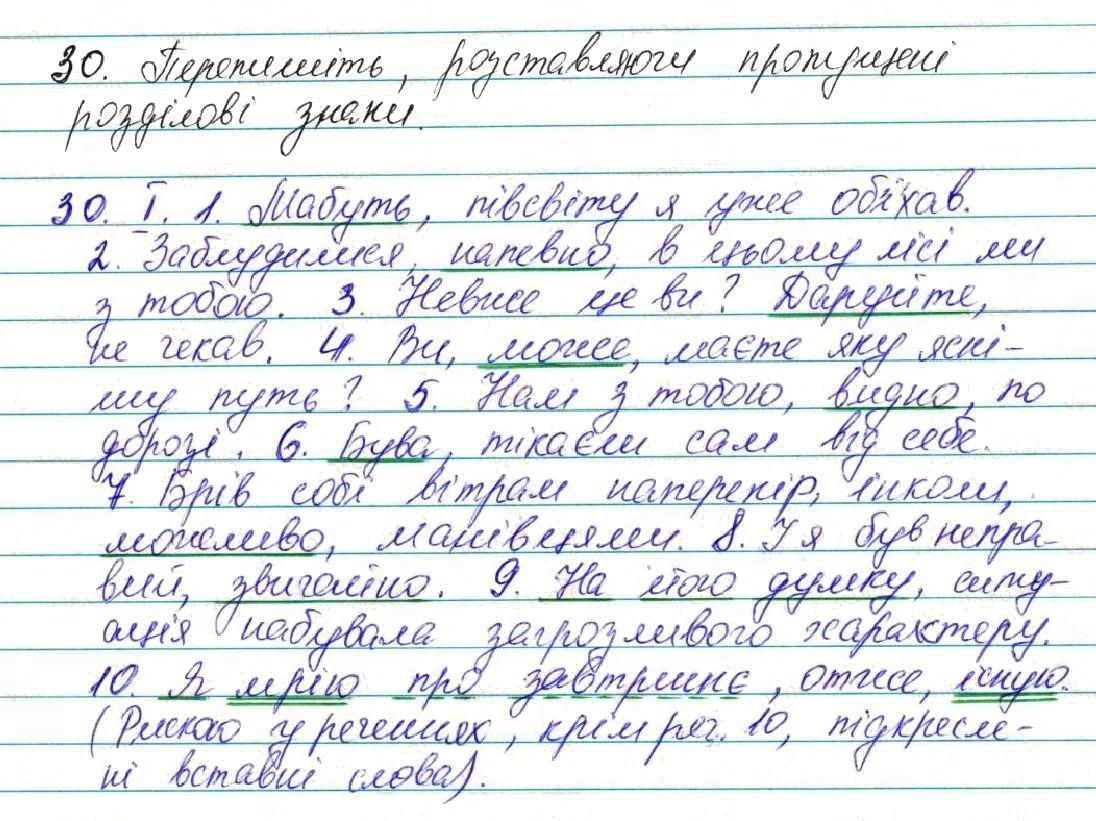 30. Перепишіть, розставляючи пропущені
розділові знаки.
30. І. 1. Мабуть, півсвіту я уже об'їхав.
2. Заблудилися, напевно, в цьому лісі ми
з тобою. 3. Невже це ви? Даруйте,
не чекав. 4. Ви, може, маєте яку ясні-
шу путь? 5. Нам з тобою, видно, по
дорозі. 6. Бува, тікаєш сам від себе.
7. Брів собі вітрам наперекір, інколи,
можливо, манівцями. 8. І я був непра-
вий, звичайно. 9. На його думку, ситу-
ація набувала загрозливого характеру.
10. Я мрію про завтрашнє, отже, існую.
(Рискою у реченнях, крім реч. 10, підкресле-
ні вставні слова).